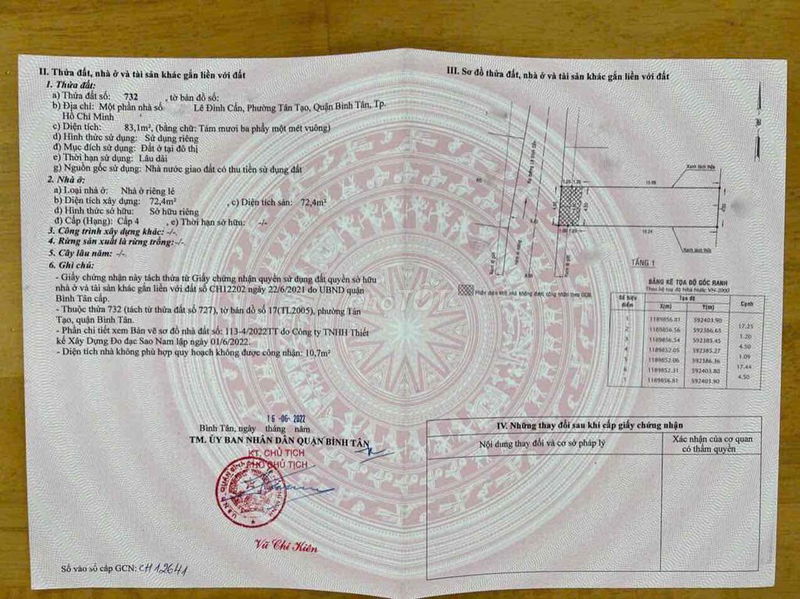 II. Thửa đất, nhà ở và tài sản khác gắn liền với đất
1. Thửa đất:
a) Thửa đất số: 732, tờ bản đồ số:
b) Địa chỉ: Một phần nhà số Lê Đình Cẩn, Phường Tân Tạo, Quận Bình Tân, Tp.
Hồ Chí Minh
c) Diện tích: 83,1m², (bằng chữ: Tám mươi ba phẩy một mét vuông)
d) Hình thức sử dụng: Sử dụng riêng
đ) Mục đích sử dụng: Đất ở tại đô thị
e) Thời hạn sử dụng: Lâu dài
g) Nguồn gốc sử dụng: Nhà nước giao đất có thu tiền sử dụng đất
2. Nhà ở:
a) Loại nhà ở: Nhà ở riêng lẻ
b) Diện tích xây dựng: 72,4m² , c) Diện tích sàn: 72,4m²
d) Hình thức sở hữu: Sở hữu riêng
đ) Cấp (Hạng): Cấp 4 , e) Thời hạn sở hữu: -/-
3. Công trình xây dựng khác: -/-
4. Rừng sản xuất là rừng trồng:-/-
5. Cây lâu năm: -/-
6. Ghi chú:
- Giấy chứng nhận này tách thửa từ Giấy chứng nhận quyền sử dụng đất quyền sở hữu
nhà ở và tài sản khác gắn liền với đất số CH12202 ngày 22/6/2021 do UBND quận
Bình Tân cấp.
- Thuộc thửa 732 (tách từ thửa đất số 727), tờ bản đồ số 17(TL2005), phường Tân
Tạo, quận Bình Tân.
- Phần chi tiết xem Bản vẽ sơ đồ nhà đất số: 113-4/2022TT do Công ty TNHH Thiết
kế Xây Dựng Đo đạc Sao Nam lập ngày 01/6/2022.
- Diện tích nhà không phù hợp quy hoạch không được công nhận: 10,7m²
16 -06- 2022
Bình Tân, ngày tháng năm
TM. ỦY BAN NHÂN DÂN QUẬN BÌNH TÂN
KT. CHỦ TỊCH
PHÓ CHỦ TỊCH
Vũ Chí Kiên
Số vào sổ cấp GCN: CH12641
III. Sơ đồ thửa đất, nhà ở và tài sản khác gắn liền với đất
Ranh tách thửa
1.20 1.20
Ranh tách thửa
TẦNG 1
Phần diện tích nhà không được công nhận theo GCN
BẢNG KÊ TỌA ĐỘ GÓC RANH
Theo hệ tọa độ Nhà Nước VN-2000
Số hiệu điểm Tọa độ Cạnh
X(m) Y(m)
1 1189856.81 592403.90
17.25
2 1189856.56 592386.65
1.20
3 1189856.54 592385.45
4.50
4 1189852.05 592385.27
1.09
5 1189852.06 592386.36
17.44
6 1189852.31 592403.80
4.50
1 1189856.81 592403.90
IV. Những thay đổi sau khi cấp giấy chứng nhận
Nội dung thay đổi và cơ sở pháp lý
Xác nhận của cơ quan
có thẩm quyền